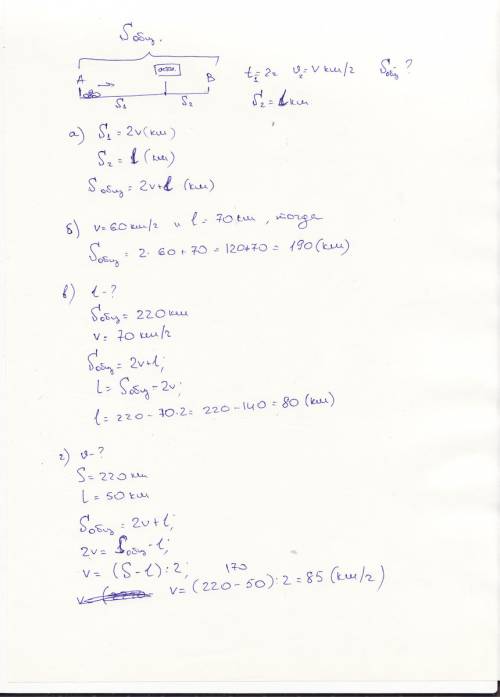 Sобщ.
A ост. B
S₁ S₂
t₁=2ч v₂=V км/ч Sобщ-?
S₂=l км
а) S₁=2v (км)
S₂=l (км)
Sобщ=2v+l (км)
б) v=60 км/ч и l=70 км, тогда
Sобщ=2·60+70=120+70=190 (км)
в) l-?
Sобщ=220 км
v=70 км/ч
Sобщ=2v+l;
l=Sобщ-2v;
l=220-70·2=220-140=80 (км)
г) v-?
S=220 км
L=50 км
Sобщ=2v+l;
2v=Sобщ-l;
v=(S-l):2;
170
v=(220-50):2=85 (км/ч)